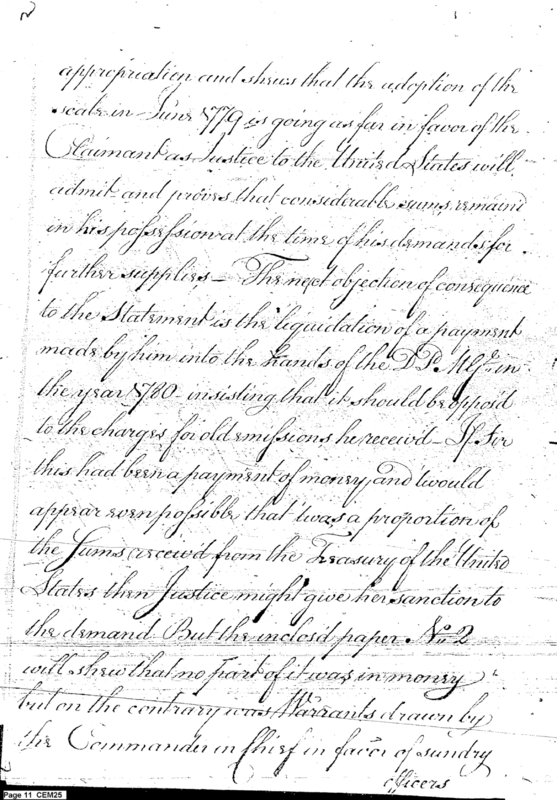 2
appropriation and shews that the adoption of the
scale in June 1779 is going as far in favor of the
Claimant as Justice to the United States will
admit and proves that considerable sums remaind
in his possession at the time of his demands for
further supplies – The next objection of consequence
to the Statement is the liquidation of a payment
made by him into the hands of the D P. M Gr. in
the year 1780 – insisting that it should be opposd
to the charges for old emissions he receivd – If Sir
this had been a payment of money, and would
appear even possible that 'twas a proportion of
the Sums receiv'd from the Treasury of the United
States then Justice might give her sanction to
the demand But the inclos'd paper No. 2
will shew that no part of it was in money
but on the contrary was Warrants drawn by
the Commander in Chief in favor of sundry
officers
Page 11 CEM25